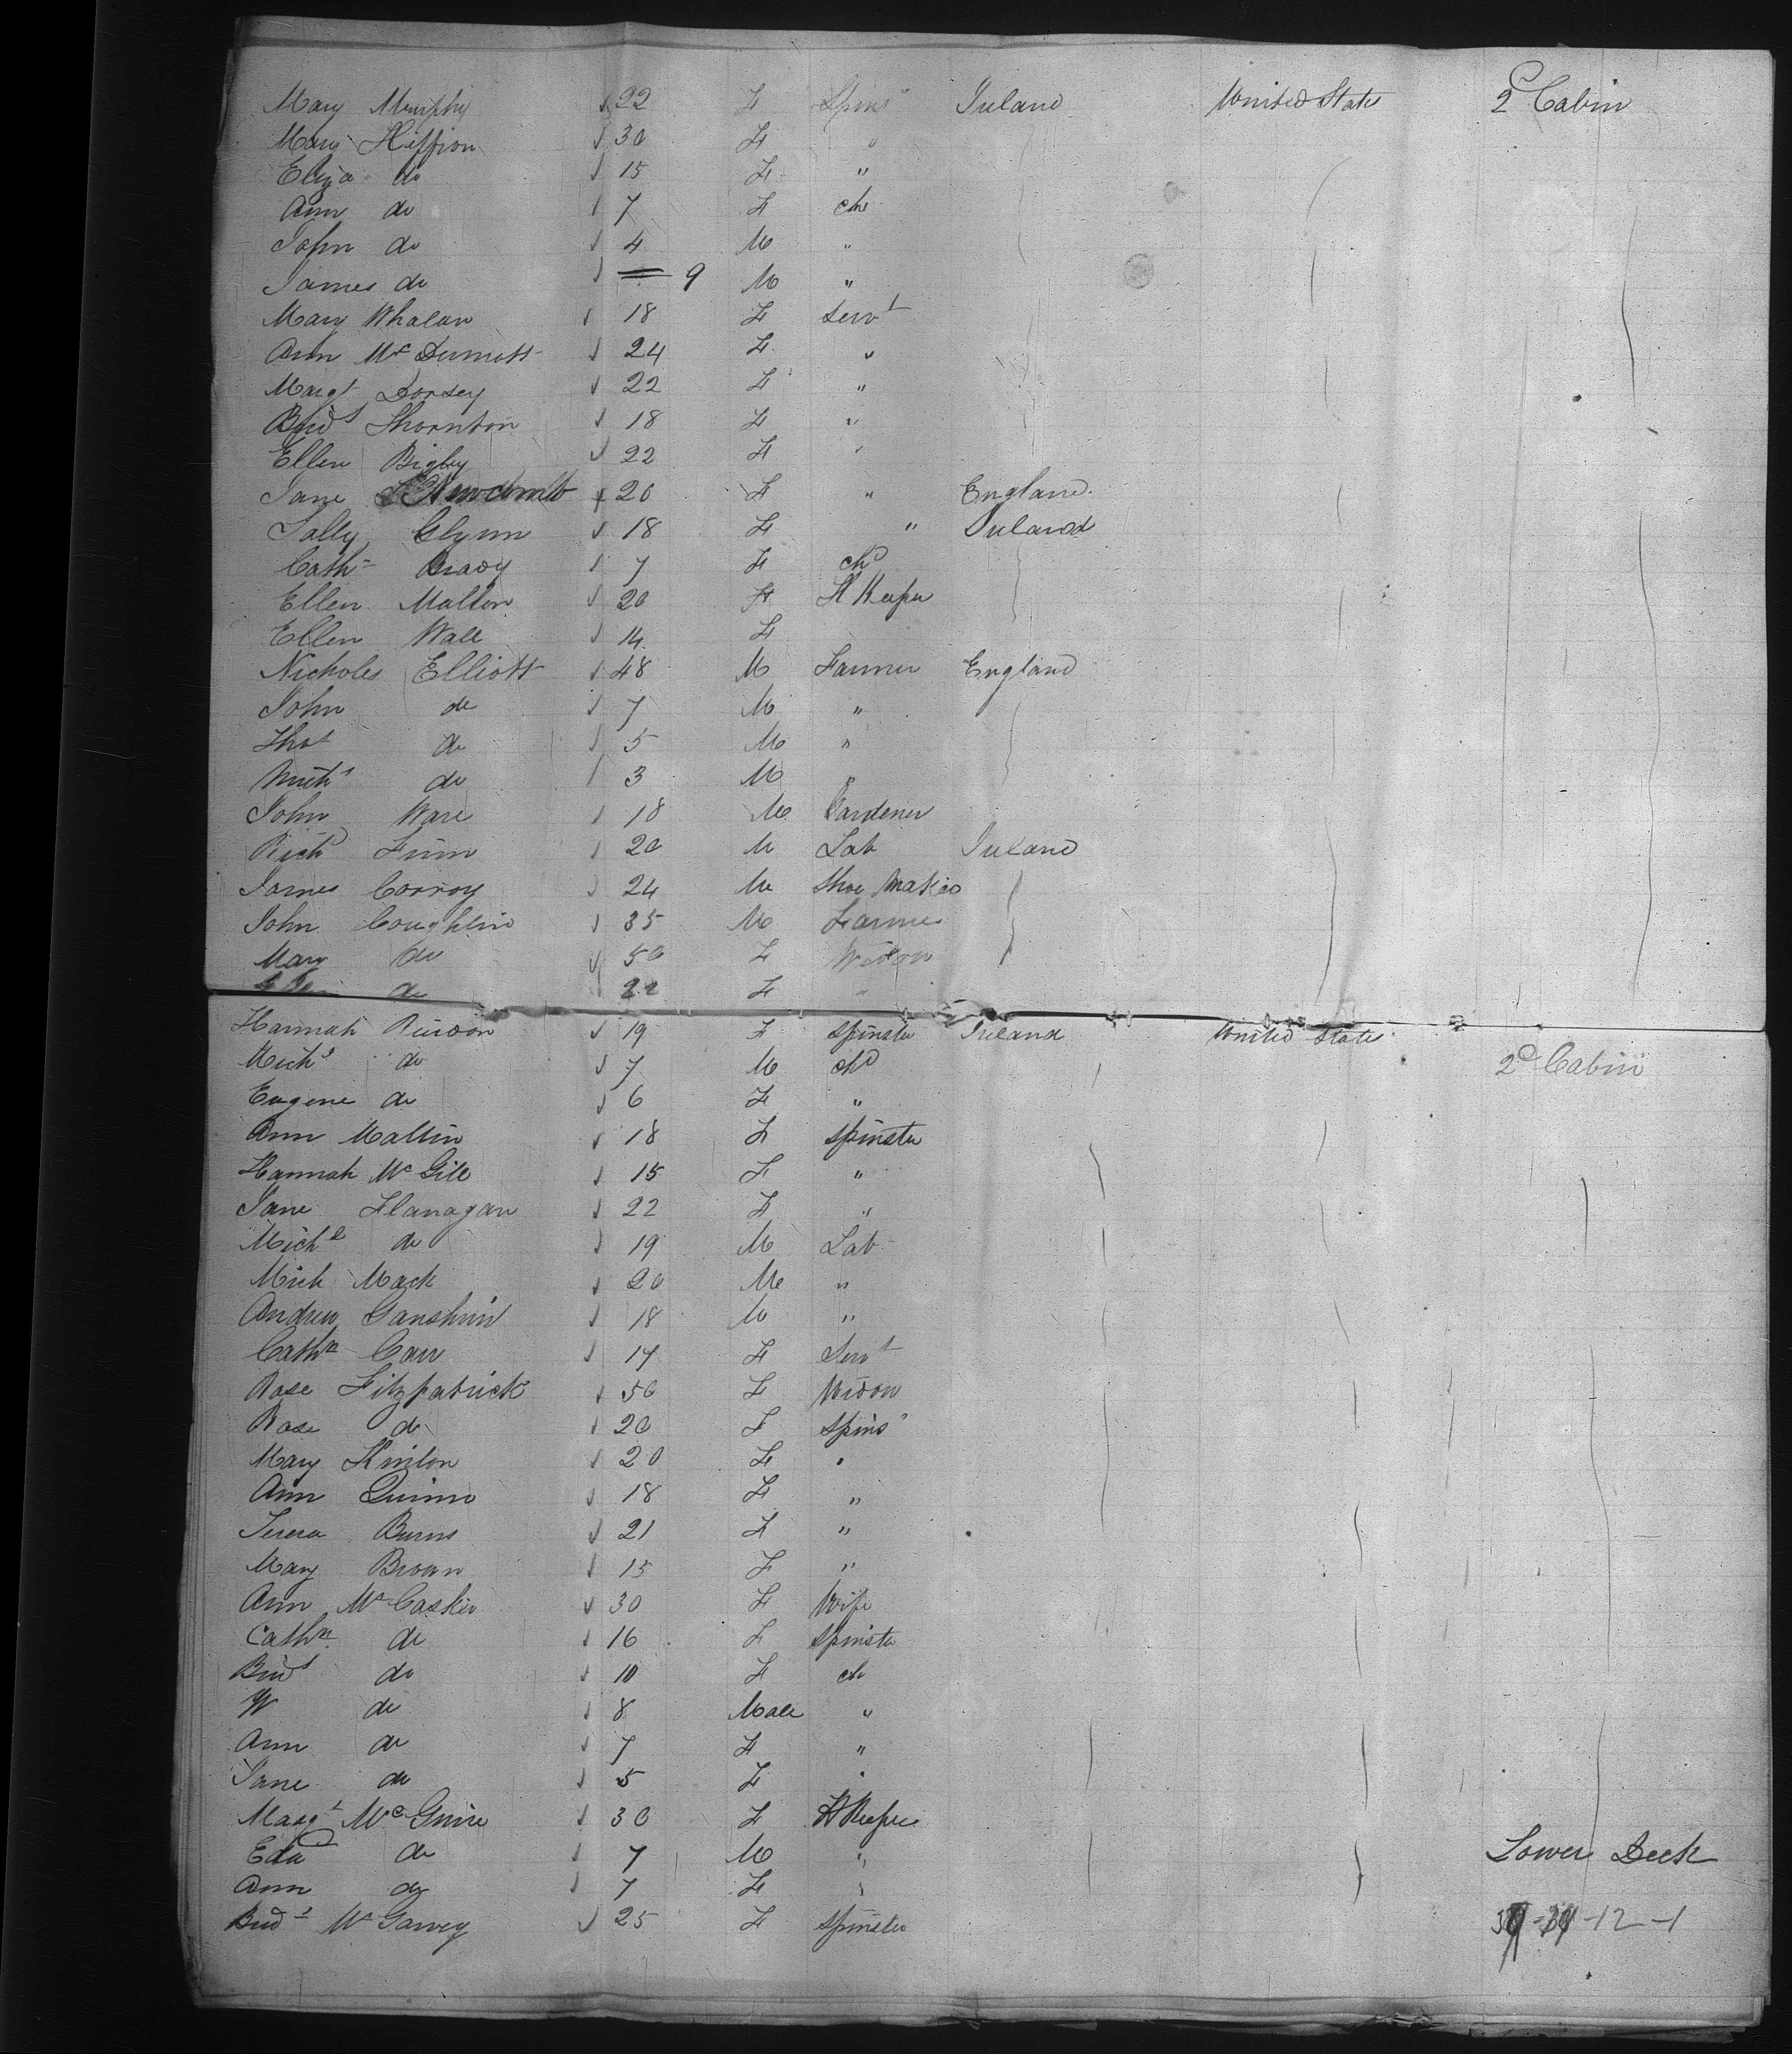 Mary Murphy 22 F Spins' Ireland United State 2d Cabin
Mary Heffion 30 F "
Eliza do 15 F "
Ann do 7 F ch
John do 4 M "
James do 9 M "
Mary Whalan 18 F Servt
Ann McDermott 24 F "
Margt Dorsey 22 F "
Bridt Thornton 18 F "
Ellen Bigley 22 F "
Jane Newcomb 20 F " England
Sally Glynn 18 F " Ireland
Cath Brady 7 F chd
Ellen Malton 20 F H Keeper
Ellen Wall 14 F
Nicholes Elliott 48 M Farmer England
John do 7 M "
Thos do 5 M "
do 3 M "
John Ware 18 M Gardener
Richd Finn 20 M Lab Ireland
James Corroy 24 M Shoe Maker
John Coughlin 35 M Farmer
Mary do 50 F Widow
Ellen do 22 F "
Hannah Rirdon 19 F Spinster Ireland United States
Michl do 7 M chd 2d Cabin
Eugene do 6 F "
Ann Maltin 18 F Spinster
Hannah McGill 15 F "
Jane Flanagan 22 F "
Michl do 19 M Lab
Mich Mack 20 M "
Andrew 18 M "
Cathn Carr 17 F Servt
Rose Fitzpatrick 50 F Widow
Rose do 20 F Spins'
Mary Kinlon 20 F "
Ann Quinn 18 F "
Teresa Burns 21 F "
Mary Brown 15 F "
Ann McCasker 30 F Wife
Cathn do 16 F Spinster
Bridt do 10 F ch
W do 8 Male "
Ann do 7 F "
Jane do 5 F "
Margt McGuire 30 F H Keeper
Edwd do 7 M " Lower Deck
Ann do 7 F "
Bridt McGarvey 25 F Spinster -12-1